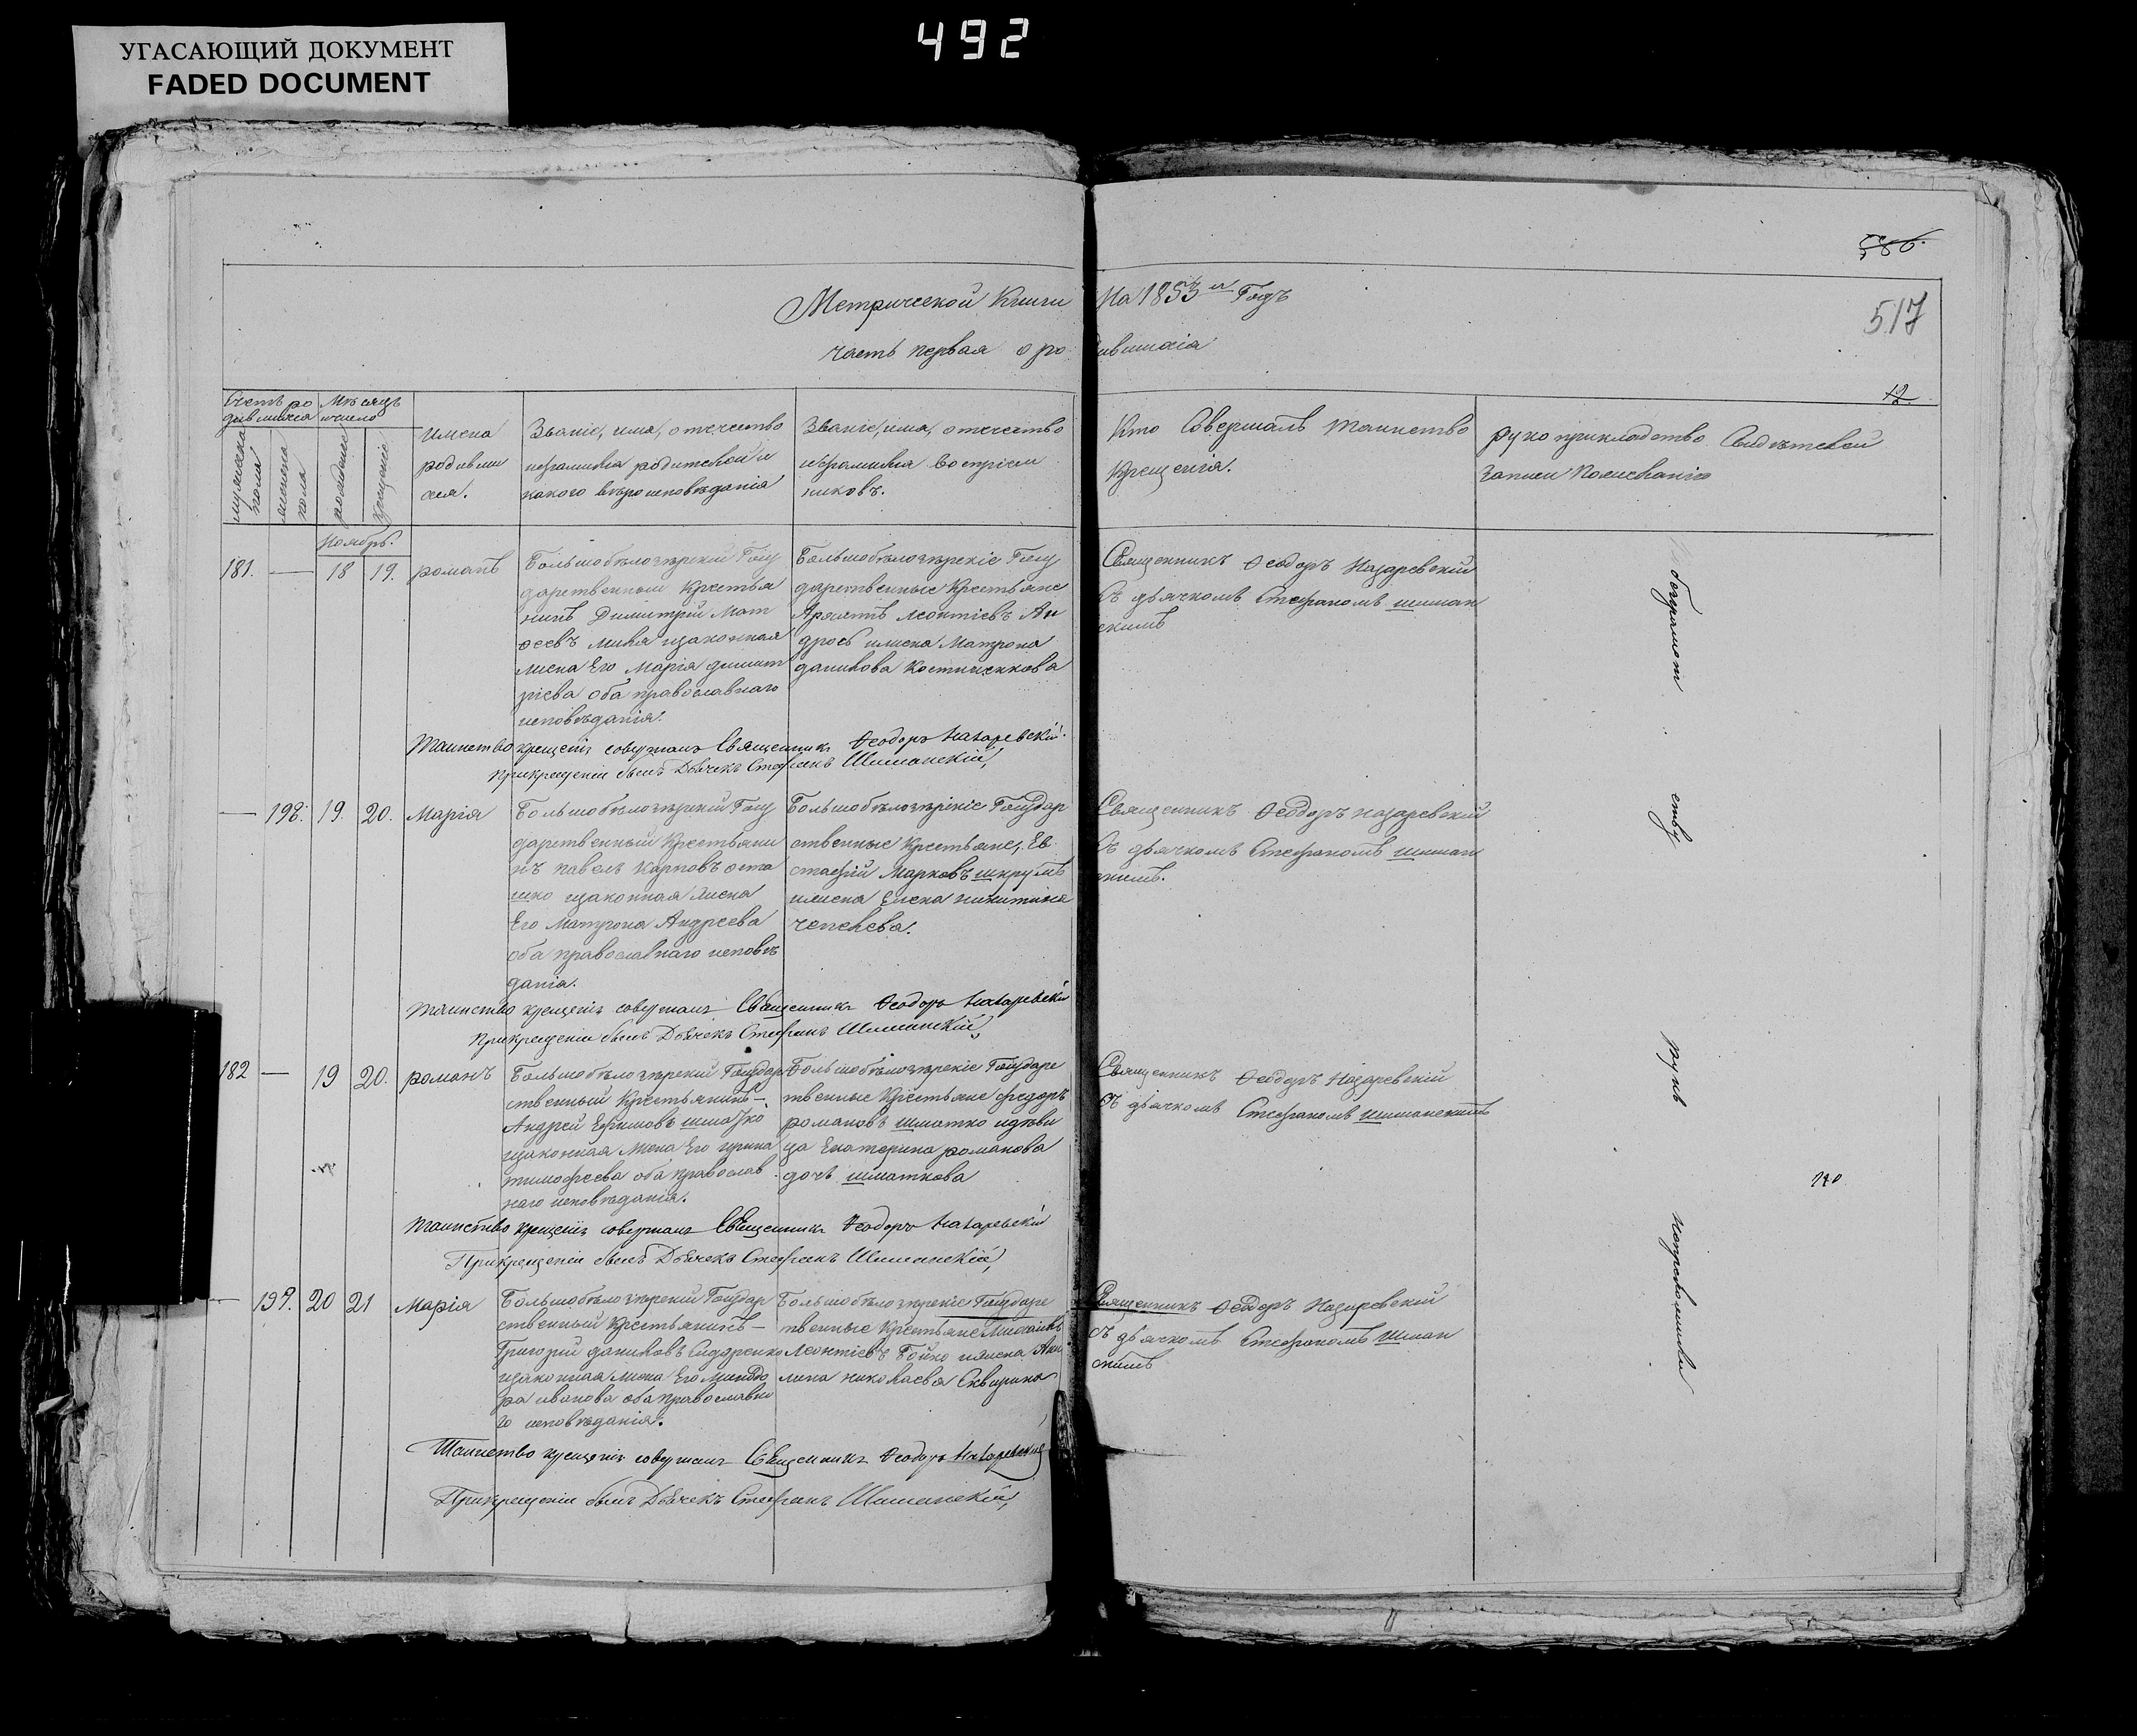 492
УГАСАЮЩИЙ ДОКУМЕНТ
FADED DOCUMENT
586.
517
Метрической Книги На 1853й Годъ
часть первая о родившихся
12
Счетъ ро Мѣсяцъ
дившихся и число
мужеска пола
женска пола
рождение
крещение
Имена
родивши
хся.
Званіе, имя, отчество
и фамилия родителей и
какого вѣроисповѣданія
Званіе, имя, отчество
и фамилия воспріем
никовъ.
Кто Совершалъ таинство
Крещенія.
рукоприкладство Свидѣтелей
записи По желанію
Ноябрь.
181. — 18 19. романъ
Большобѣлозѣрский Госу
дарственный Крестья
нинъ Димитрий Мат
ѳеевъ изаконная
жена Его Марія димит
ріева оба православнаго
исповѣданія.
Большобѣлозѣрскіе Госу
дарственные Крестьяне
Леонтіевъ Ан
дросъ ижена Матрона
данилова
Священникъ Ѳеодоръ Назаревский
съ дьячкомъ Стефаномъ шиман
скимъ
Таинство крещенія совершалъ Священникъ Ѳеодоръ Назаревскій.
При крещеніи былъ Дьячекъ Стефанъ Шиманскій,
— 198. 19. 20. Марія
Большобѣлозѣрский Госу
дарственный Крестьяни
нъ павелъ Карповъ оста
шко изаконная жена
Его Матрона Андреева
оба православнаго исповѣ
данія.
Большобѣлозѣрскіе Государ
ственные Крестьяне, Ев
стафий Марковъ шкрумъ
ижена Елена никитина
чепелева.
Священникъ Ѳеодоръ назаревский
съ дьячкомъ Стефаномъ шиман
скимъ.
Таинство крещенія совершалъ Священникъ Ѳеодоръ Назаревскій
При крещеніи былъ Дьячекъ Стефанъ Шиманскій,
182 — 19 20. романъ
Большобѣлозѣрский Государ
ственный Крестьянинъ —
Андрей Ефимовъ шматко
изаконная жена Его ирина
тимофеева оба православ
наго исповѣданія.
Большобѣлозѣрскіе Государс
твенные Крестьяне федоръ
романовъ шматко идѣви
ца Екатерина романова
дочь шматкова
Священникъ Ѳеодоръ Назаревский
съ дьячкомъ Стефаномъ шиманскимъ
Таинство крещенія совершалъ Священникъ Ѳеодоръ Назаревскій
При крещеніи былъ Дьячекъ Стефанъ Шиманскій,
— 199. 20 21 Марія
Большобѣлозѣрский Государ
ственный Крестьянинъ —
Григорий даниловъ Сидоренко
изаконная жена Его
ра иванова оба православна
го исповѣданія.
Большобѣлозѣрскіе Государс
твенные Крестьяне Михаилъ
Леонтіевъ Бойко ижена Аки
лина николаева Скварина
Священникъ Ѳеодоръ Назаревский
съ дьячкомъ Стефаномъ шиман
скимъ
Таинство крещенія совершалъ Священникъ Ѳеодоръ Назаревскій
При крещеніи былъ Дьячекъ Стефанъ Шиманскій,
безграмот
ству
рукъ
неприложили